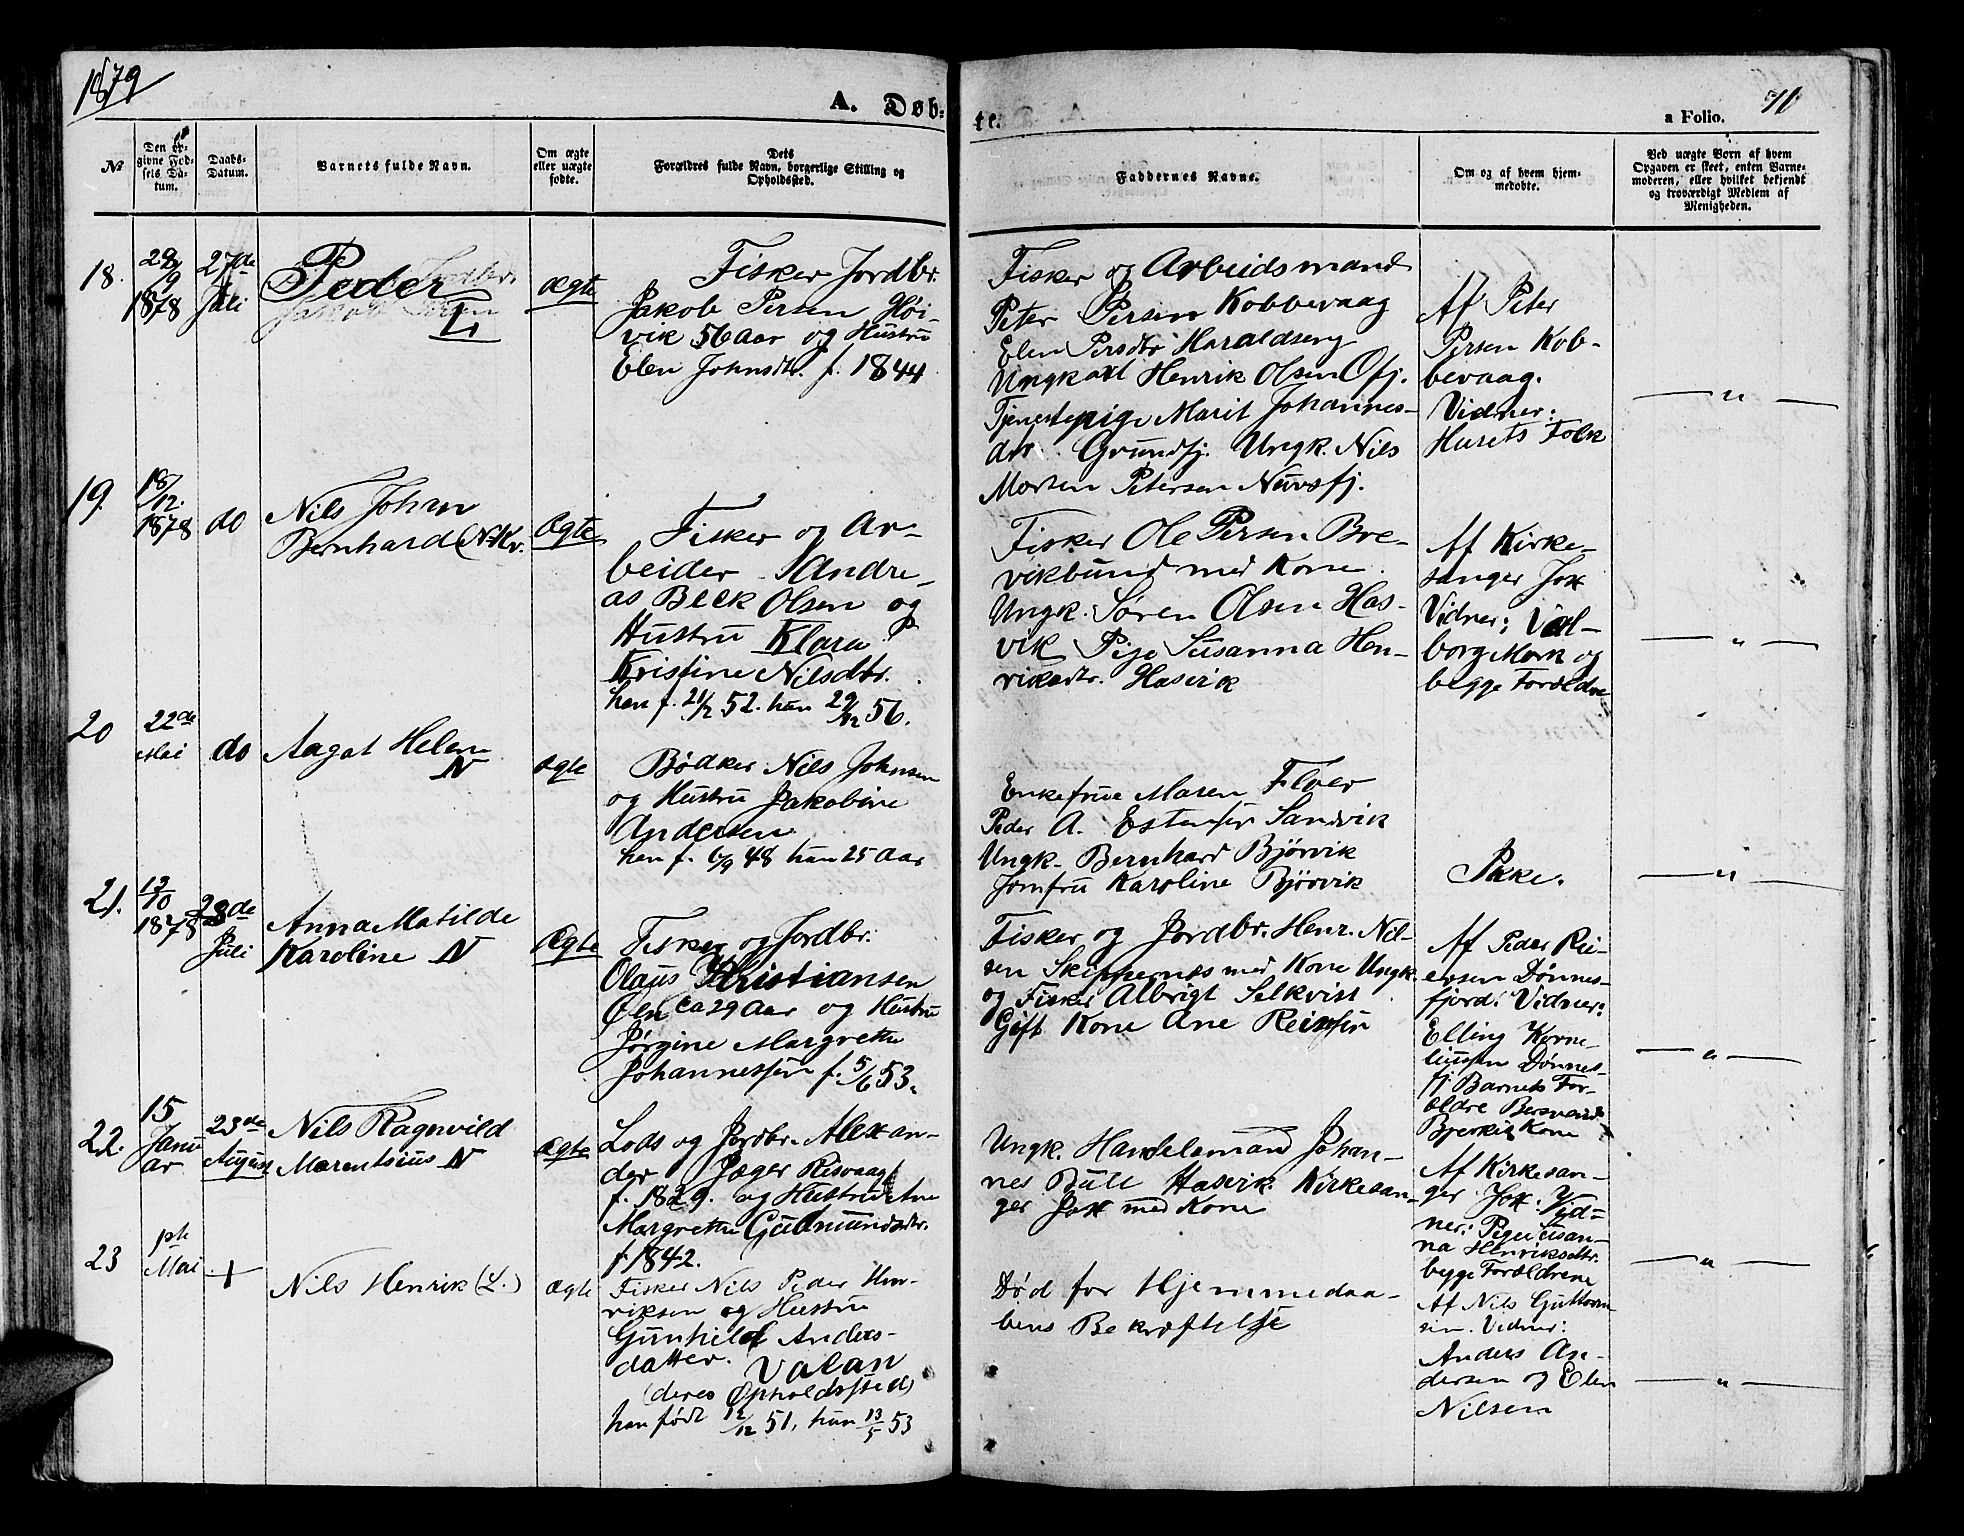 1879
A. Døb-
te.
a Folio.
71
No
Den op-
givne Fød-
sels Da-
tum.
Daabs-
Datum.
Barnets fulde Navn.
Om ægte
eller uægte
fødte.
Dets
Forældres fulde Navn, borgerlige Stilling og
Opholdssted.
Faddernes Navne.
Om og af hvem hjem-
medøbte.
Ved uægte Børn af hvem
Opgaven er skeet, enten Barne-
moderen, eller hvilket bekjendt
og troværdigt Medlem af
Menigheden.
18.
28/9
1878
27de
Juli
Peder
L
Ægte
Fisker Jordbr.
Jakob Persen Høi-
vik 56 Aar og Hustru
Elen Johnsdtr. f. 1844
Fisker og Arbeidsmand
Peter Persen Kobbevaag
Elen Persdtr Haraldseng
Ungkarl Henrik Olsen Ofj.
Tjenestepige Marit Johannes-
dtr. Grundfj. Ungk. Nils
Morten Petersen Nuvsfj.
Af Peter
Persen Kob-
bevaag.
Vidner:
Husets Folk
— " —
19.
18/12.
1878
do
Nils Johan
Bernhard (N.Kv.
Ægte
Fisker og Ar-
beider Andre-
as Beck Olsen og
Hustru Klara
Kristine Nilsdtr.
han f. 21/12 52. hun 29/12 56.
Fisker Ole Persen Bre-
vikbund med Kone.
Ungk. Søren Olsen Has-
vik Pige Susanna Hen-
riksdtr. Hasvik
Af Kirke-
sanger Jox
Vidner: Val-
borg Mork og
begge Forældre
— " —
20
22de
Mai
do
Aagat Helene
N
ægte
Bødker Nils Johnsen
og Hustru Jakobine
Andersen
han f. 6/9 48 hun 25 Aar
Enkefrue Maren Floer
Peder A. Estensen Sandvik
Ungk. Bernhard Bjørvik
Jomfru Karoline Bjørvik
Ikke.
— " —
21.
13/10
1878
28de
Juli
Anna Matilde
Karoline N
Ægte
Fisker og Jordbr.
Olaus Kristiansen
Øen ca 29 Aar og Hustru
Jørgine Margrethe
Johannessen f. 5/6 53.
Fisker og Jordbr. Henr. Nil-
sen Skippernes med Kone Ungk.
og Fisker Albrigt Selkvist
Gift Kone Ane Reiersen
Af Peder Rei-
ersen Dønnes-
fjord. Vidner:
Elling Korne-
liussen Dønnes-
fj Barnets For-
ældre Bersvend
Kone
— " —
22.
15
Janu
ar
23de
August
Nils Ragnvild
Marentsius N
ægte
Lods og Jordbr. Alexan-
der Jæger Risvaag
f. 1829. og Hustru Ane
Margrethe Gudmundsdtr.
f. 1842.
Ungk. Handelsmand Johan-
nes Bull Hasvik. Kirkesan-
ger Jox med Kone
Af Kirkesan-
ger Jox. Vid-
ner: Pige Susan-
na Henriksdtr.
begge Forældrene
— " —
23
Mai
+
Nils Henrik (L.)
ægte
Fisker Nils Peder Hen-
riksen og Hustru
Gunhild Anders-
datter. Valan
(deres Opholdssted)
han født 12/12 51, hun 13/5 53
Død før Hjemmedaa-
bens Bekræftelse
Af Nils Guttorm-
sen. Vidner:
Anders An-
dersen og Elen
Nilsen
— " —